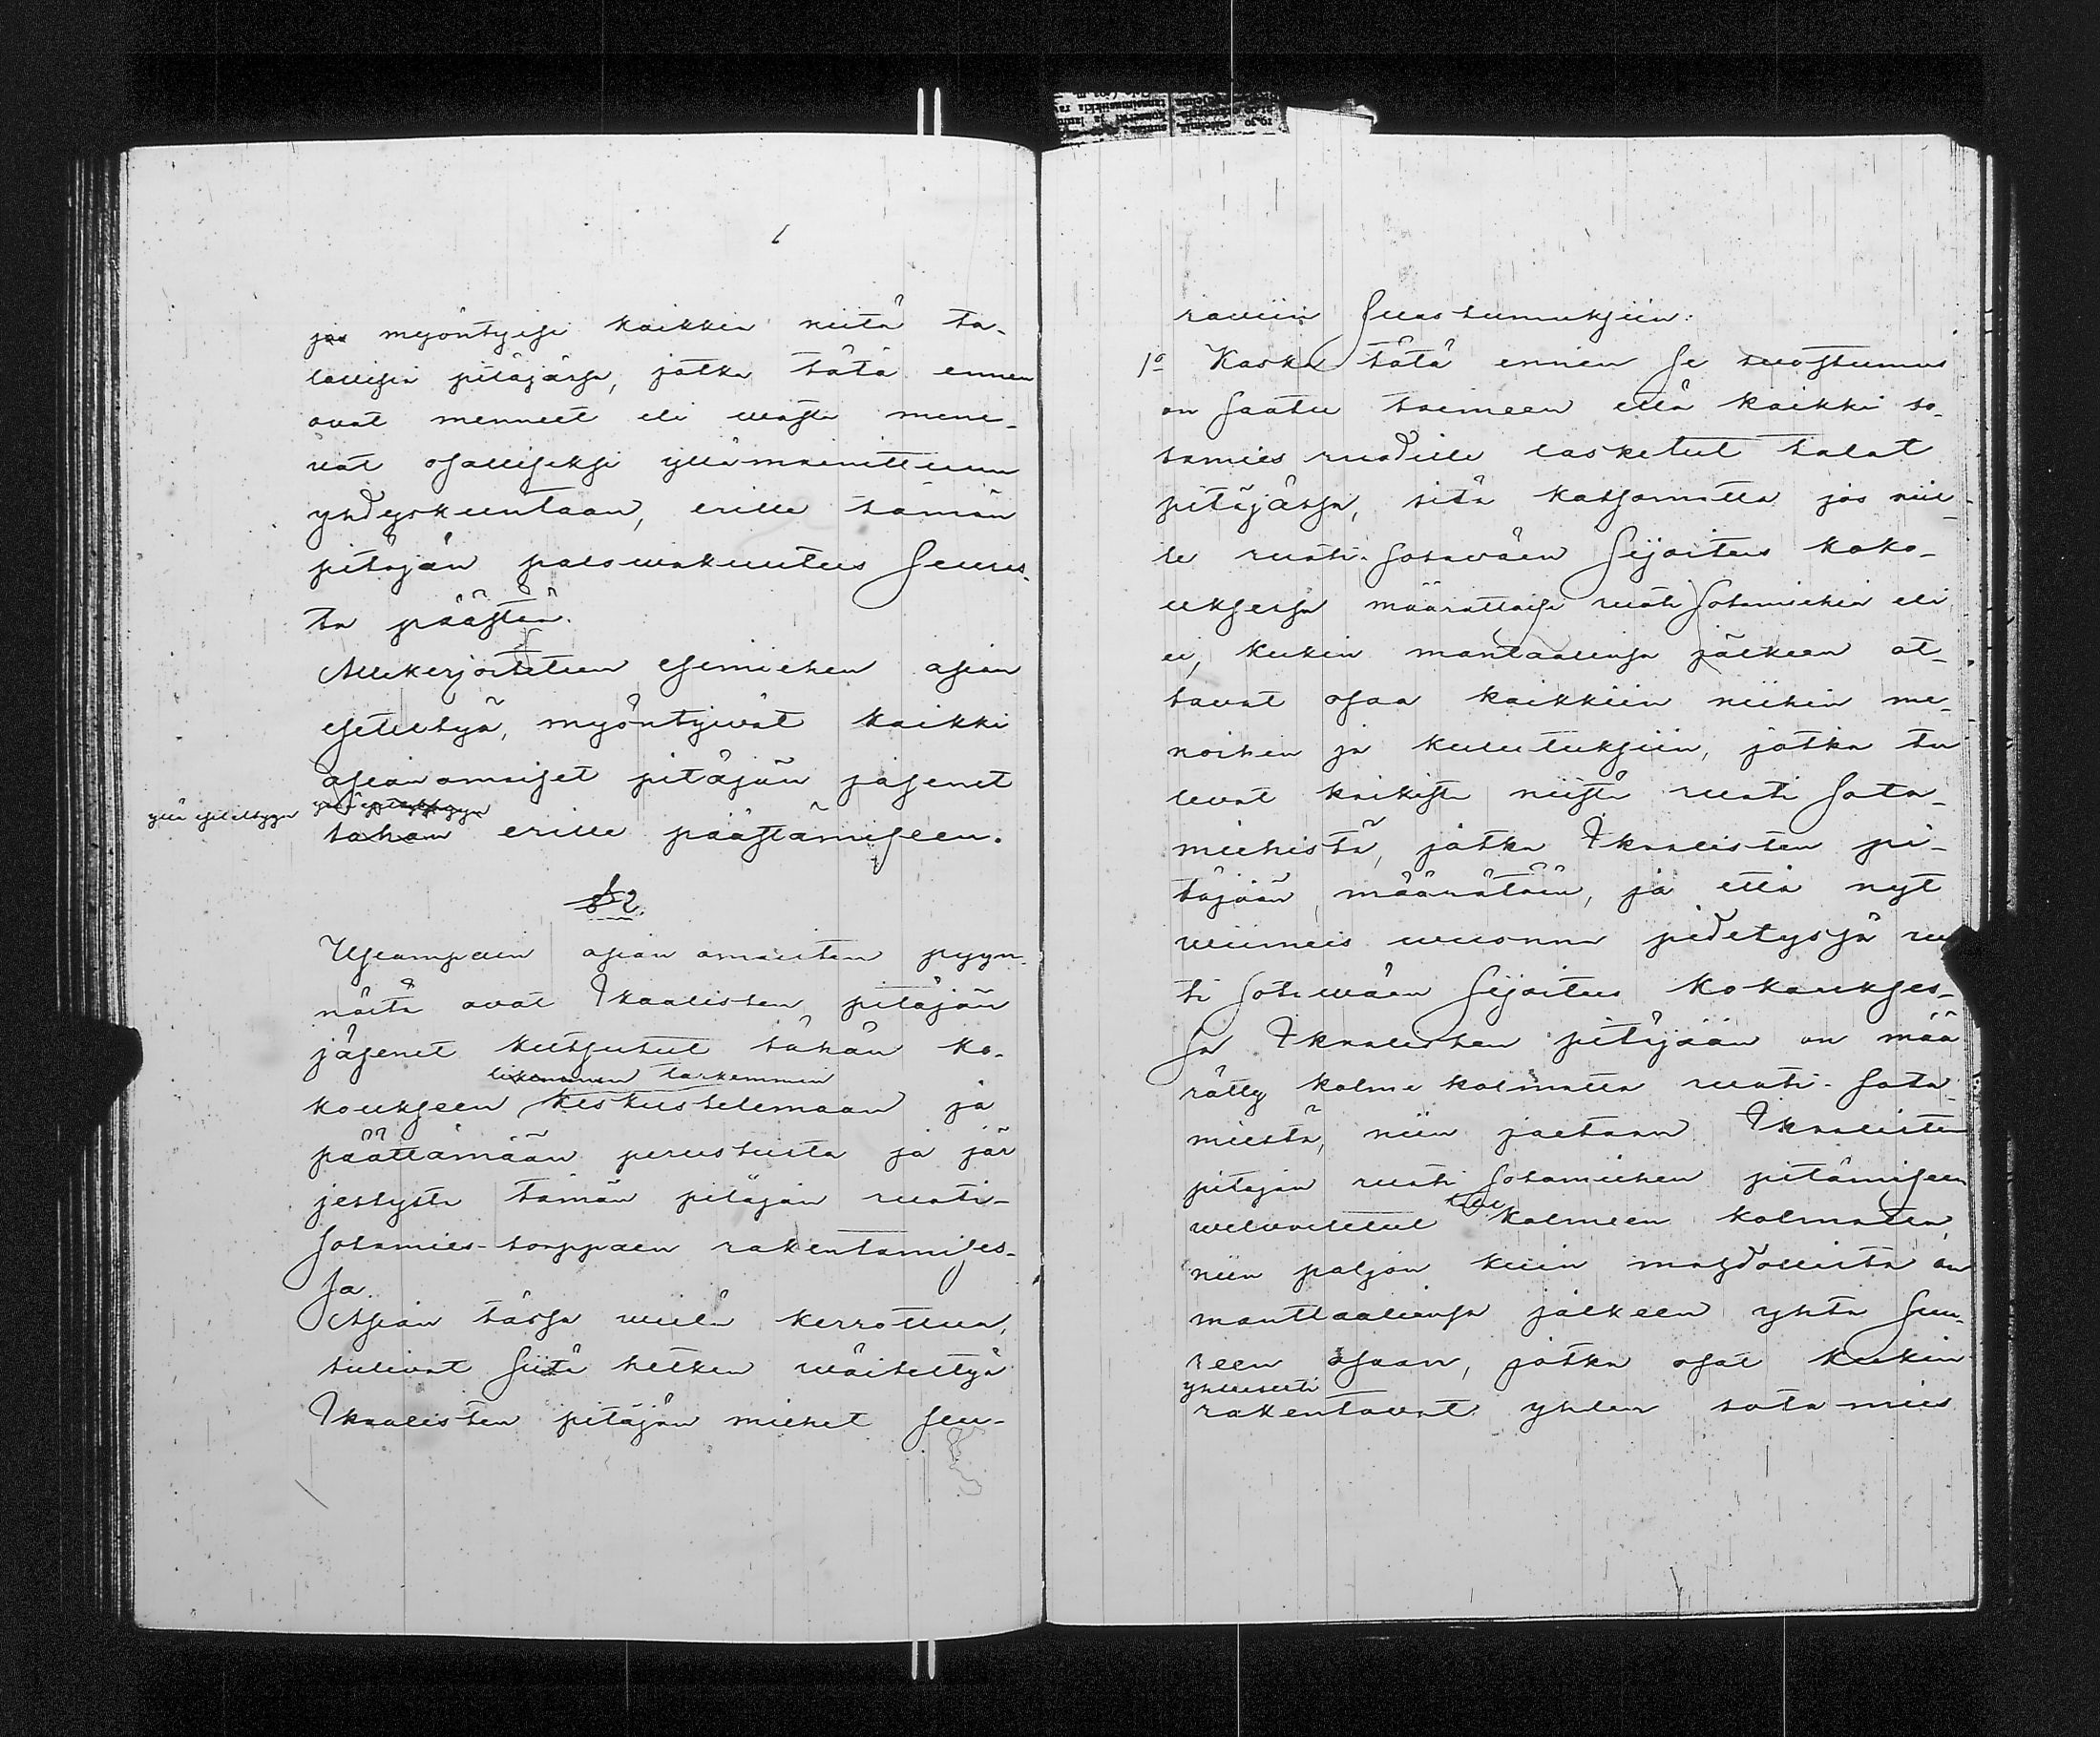 jos myöntyisi kaikkia niitä ta-
lollisia pitäjässä, jotka tätä ennen
ovat menneet eli vasta mene-
vät osalliseksi yllämainittuun
yhdyskuntaan, erille tämän
pitäjän palowakuutus seuras-
ta päästää.
Allekirjoitetun esimiehen asian
esiteltyä, myöntyivät kaikki
asianomaiset pitäjän jäsenet
yllä esiteltyyn
tähän erille päästämiseen.
§ 2.
Useampain asian omaisten pyyn-
nöstä ovat Ikaalisten pitäjän
jäsenet kutsutut tähän ko-
likemmin tarkemmin
koukseen keskustelemaan ja
päättämään perustusta ja jär
jestystä tämän pitäjän ruoti-
sotamies-torppaen rakentamises-
sa.
Asian tässä vielä kerrottua,
tulivat siitä hetken väiteltyä
Ikaalisten pitäjän miehet seu-
raaviin suostumuksiin:
1o Koska tätä ennen se suostumus
on saatu toimeen että kaikki so-
tamies ruoduille lasketut talot
pitäjässä, sitä katsomatta jos niil-
le ruoti-sotaväen sijoitus koko-
uksessa määrättäisi ruoti sotamiehiä eli
ei, kukin manttaalinsa jälkeen ot-
tavat osaa kaikkiin niihin me-
noihin ja kulutuksiin, jotka tu
levat kaikista niistä ruoti sota-
miehistä, jotka Ikaalisten pi-
täjään määrätään, ja että nyt
viimeis vuonna pidetyssä ruo
ti sotaväen sijoitus kokoukses-
sa Ikaalisten pitäjään on mää
rätty kolme kolmatta ruoti-sota-
miestä, niin jaetaan Ikaalisten
pitäjän ruoti sotamiehen pitämiseen
velvoitetut kolmeen kolmatta,
niin paljon kuin mahdollista on
manttaalinsa jälkeen yhtä suu-
reen osaan, jotka osat kukin
yhteisesti
rakentavat yhden sotamies